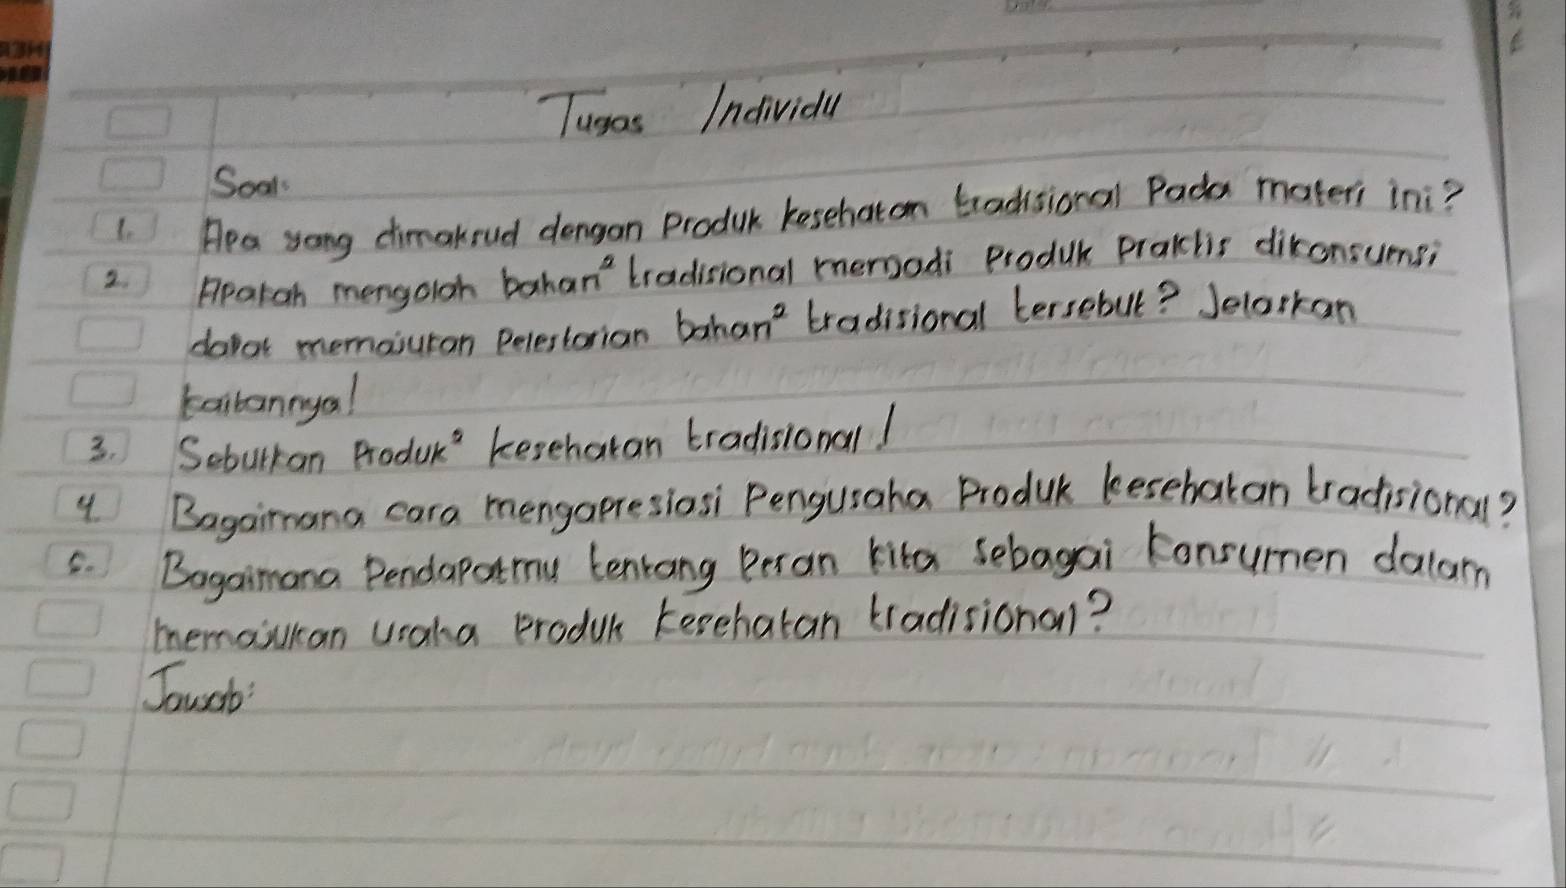 Tugas Individu
Soal:
1. Apa yang dimaksud dengan Produk kesehatan tradisional Pada materi ini?
2. Apakah mengolah bahan² tradisional menjadi Produk Praktis dikonsumsi
dapat memajukan Pelestarian bahan² tradisional tersebut? Jelaskan
kaitannya!
3. Sebutkan Produk² kesehatan tradisional!
4. Bagaimana cara mengapresiasi Pengusaha Produk kesehatan tradisional?
5. Bagaimana Pendapatmu tentang Peran kita sebagai konsumen dalam
memajukan usaha Produk kesehatan tradisional?
Jawab: